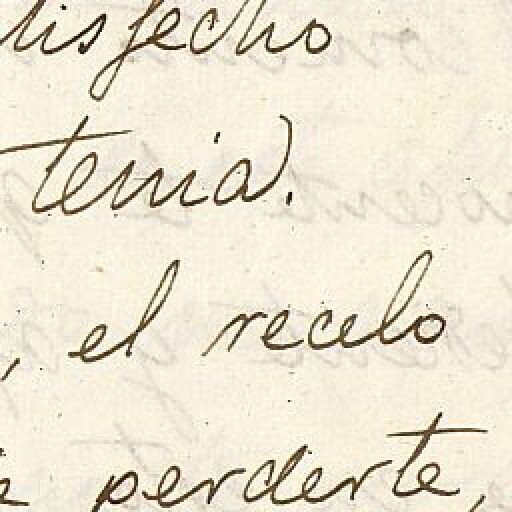 tisfecho
tenia).
, el recelo
e perderte,